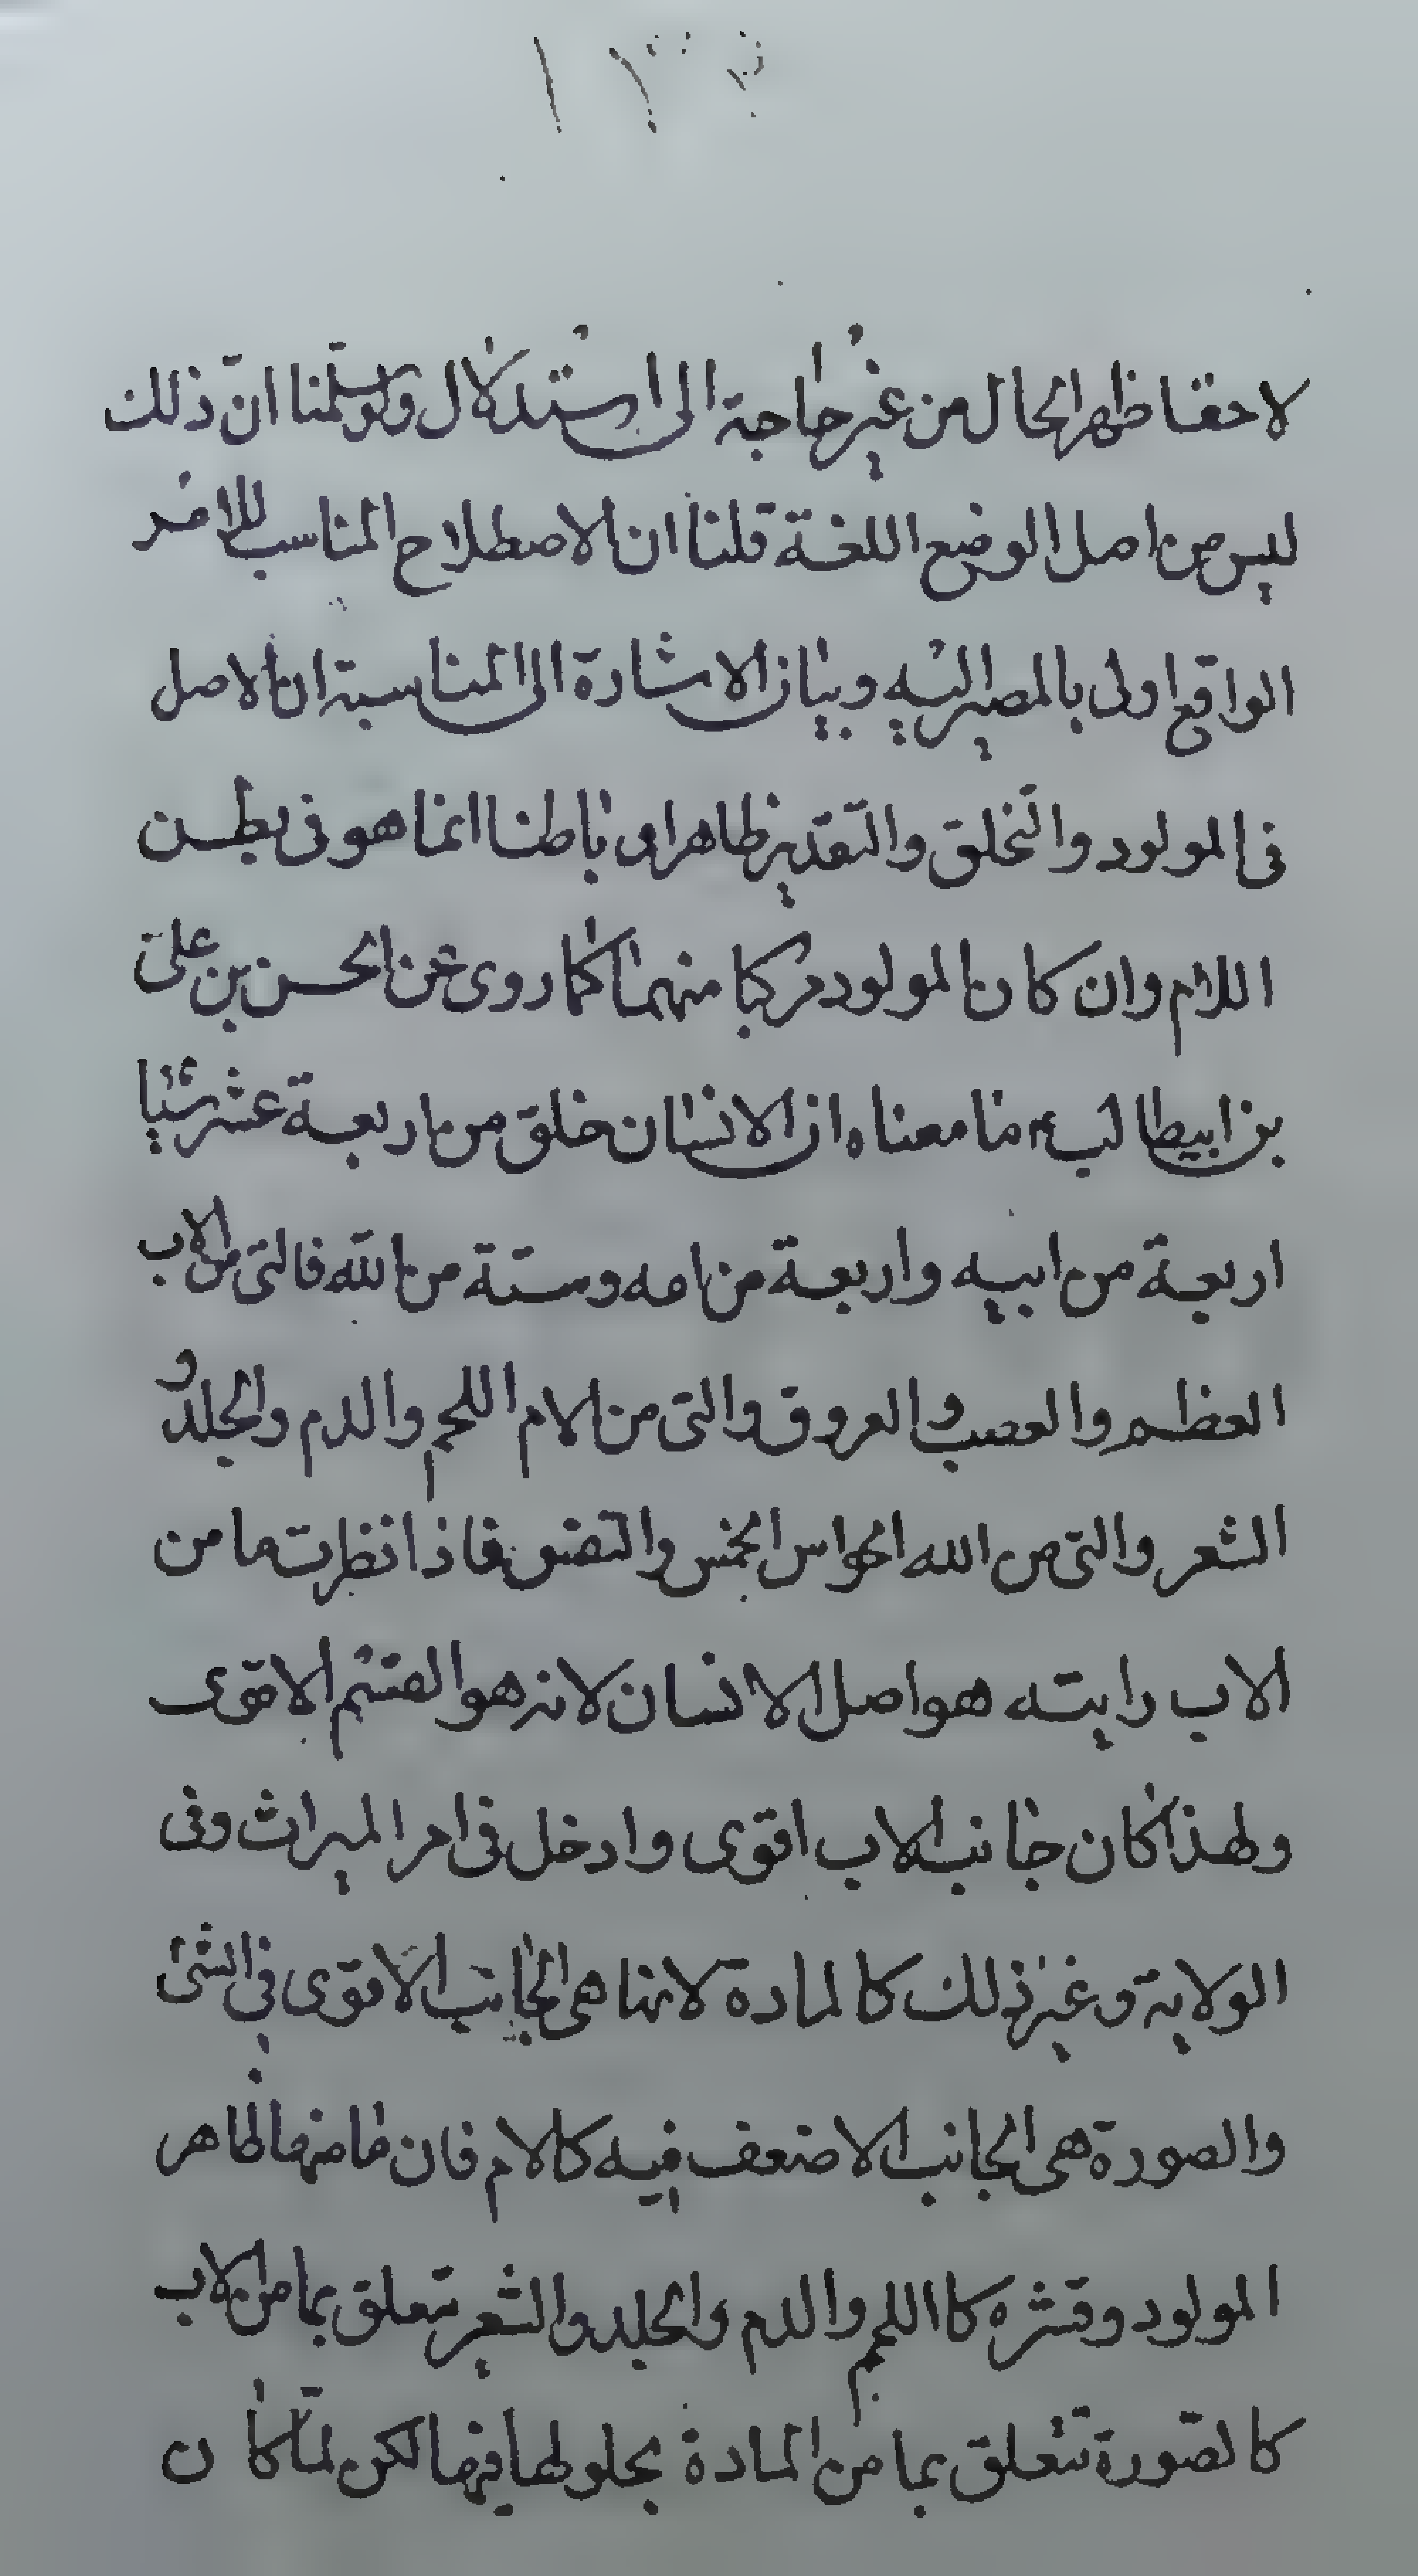 لاحقا ظهر الحال من غير حاجة الى استدلال ولو سلّمنا انّ ذلك
ليس من اصل الوضع اللغة قلنا ان الاصطلاح المناسب للامر
الواقع اولى بالمصير اليه وبيان الاشارة الى المناسبة ان الاصل
فى المولود والتخلق والتقدير ظاهرا وباطنا انما هو فى بطن
اللام وان كان المولود مركبا منهما كما روى عن الحسن بن علىّ
بن ابيطالب ع ما معناه ان الانسان خلق من اربعة عشر شيئا
اربعة من ابيه واربعة من امه وستة من الله فالتى من الاب
العظم والعصب والعروق والتى من الام اللحم والدم والجلد و
الشعر والتى من الله الحواس الخمس والنفس فاذا نظرت ما من
الاب رايته هو اصل الانسان لانه هو القسم الاقوى
ولهذا كان جانب الاب اقوى وادخل فى امر الميراث وفى
الولاية وغير ذلك كالمادة لانها هى الجانب الاقوى فى الشئ
والصورة هى الجانب الاضعف فيه كالام فان ما منها ظاهر
المولود وقشره كااللحم والدم والجلد والشعر يتعلق بما من الاب
كالصّورة تتعلق بما من المادة بحلولها فيها لكن لمّا كان